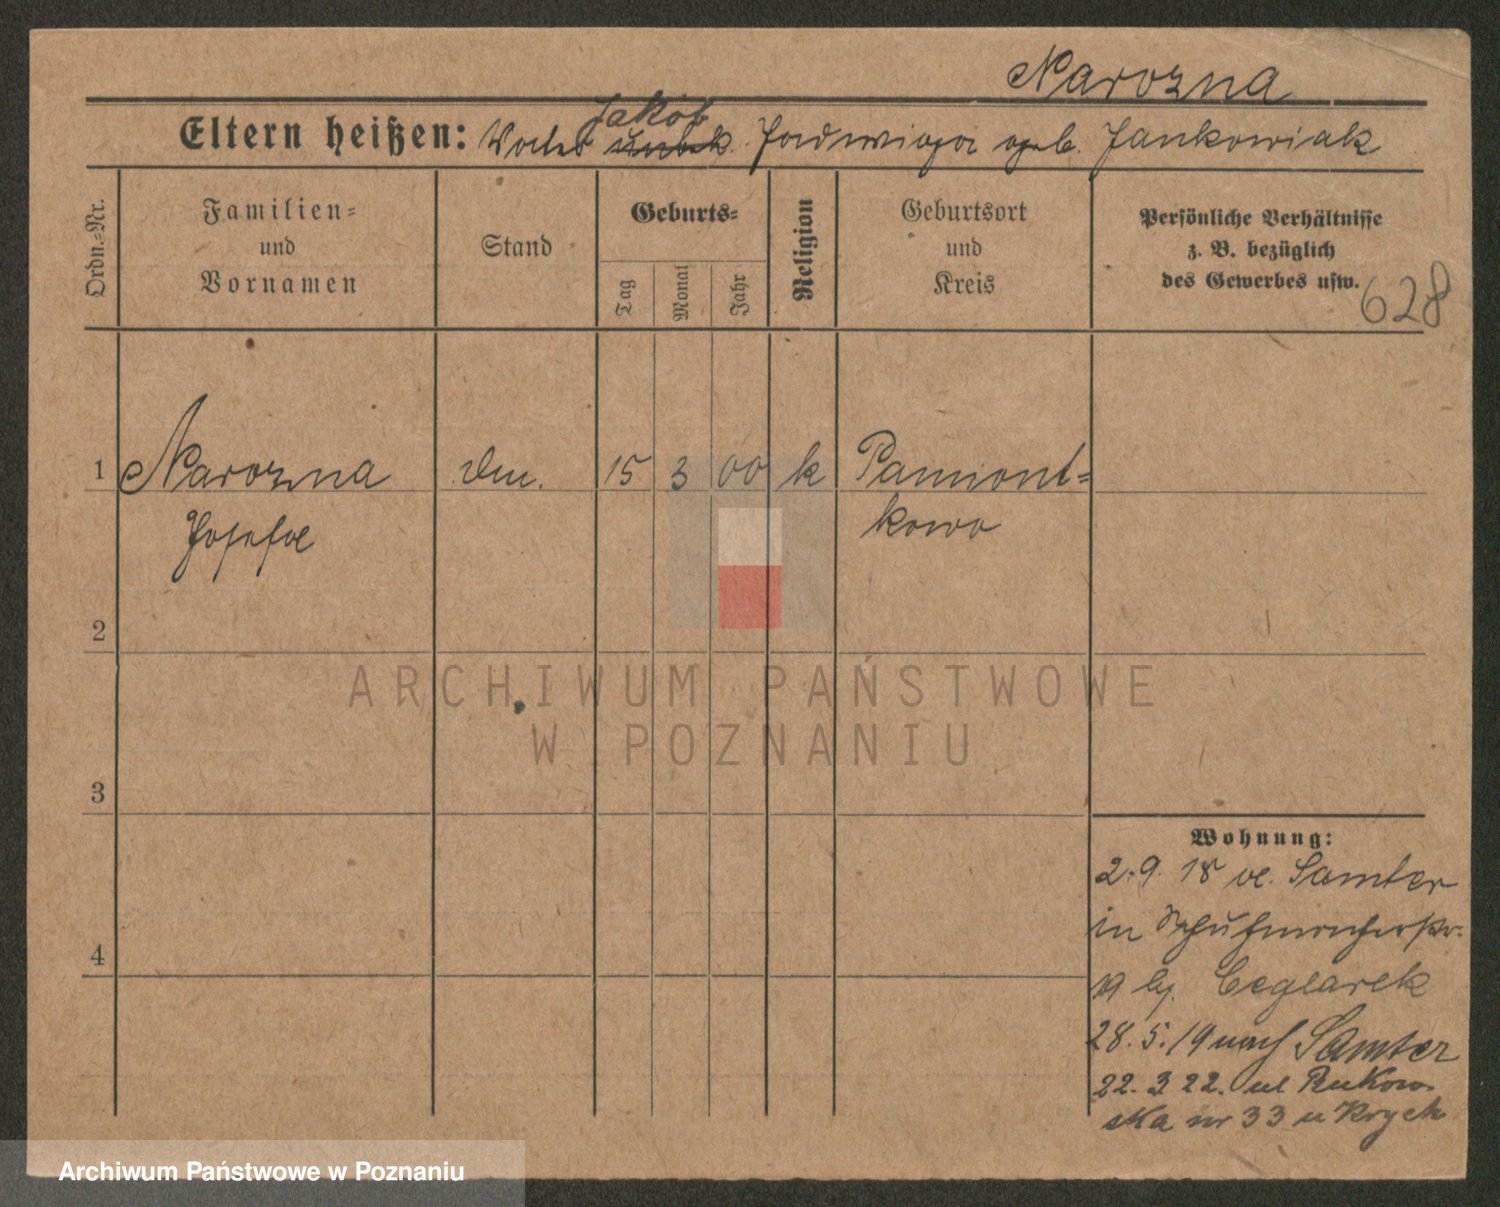 Narozna
Jakób
Eltern heißen: Vater unbek. Jadwiga geb. Jankowiak
Ordn.=Nr.
Familien=
und
Vornamen
Stand
Geburts=
Tag
Monat
Jahr
Religion
Geburtsort
und
Kreis
Persönliche Verhältnisse
z. B. bezüglich
des Gewerbes usw.
628
1 Narozna 15 3 00 k Pamiont=
Josefa kowo
2
ARCHIWUM PAŃSTWOWE
W POZNANIU
3
Wohnung:
2.9.18 Samter
in
19 b. Ceglarek
4
28.5.19 nach Samter
22.3 22. ul Bukow-
ska nr 33 u Krych
Archiwum Państwowe w Poznaniu